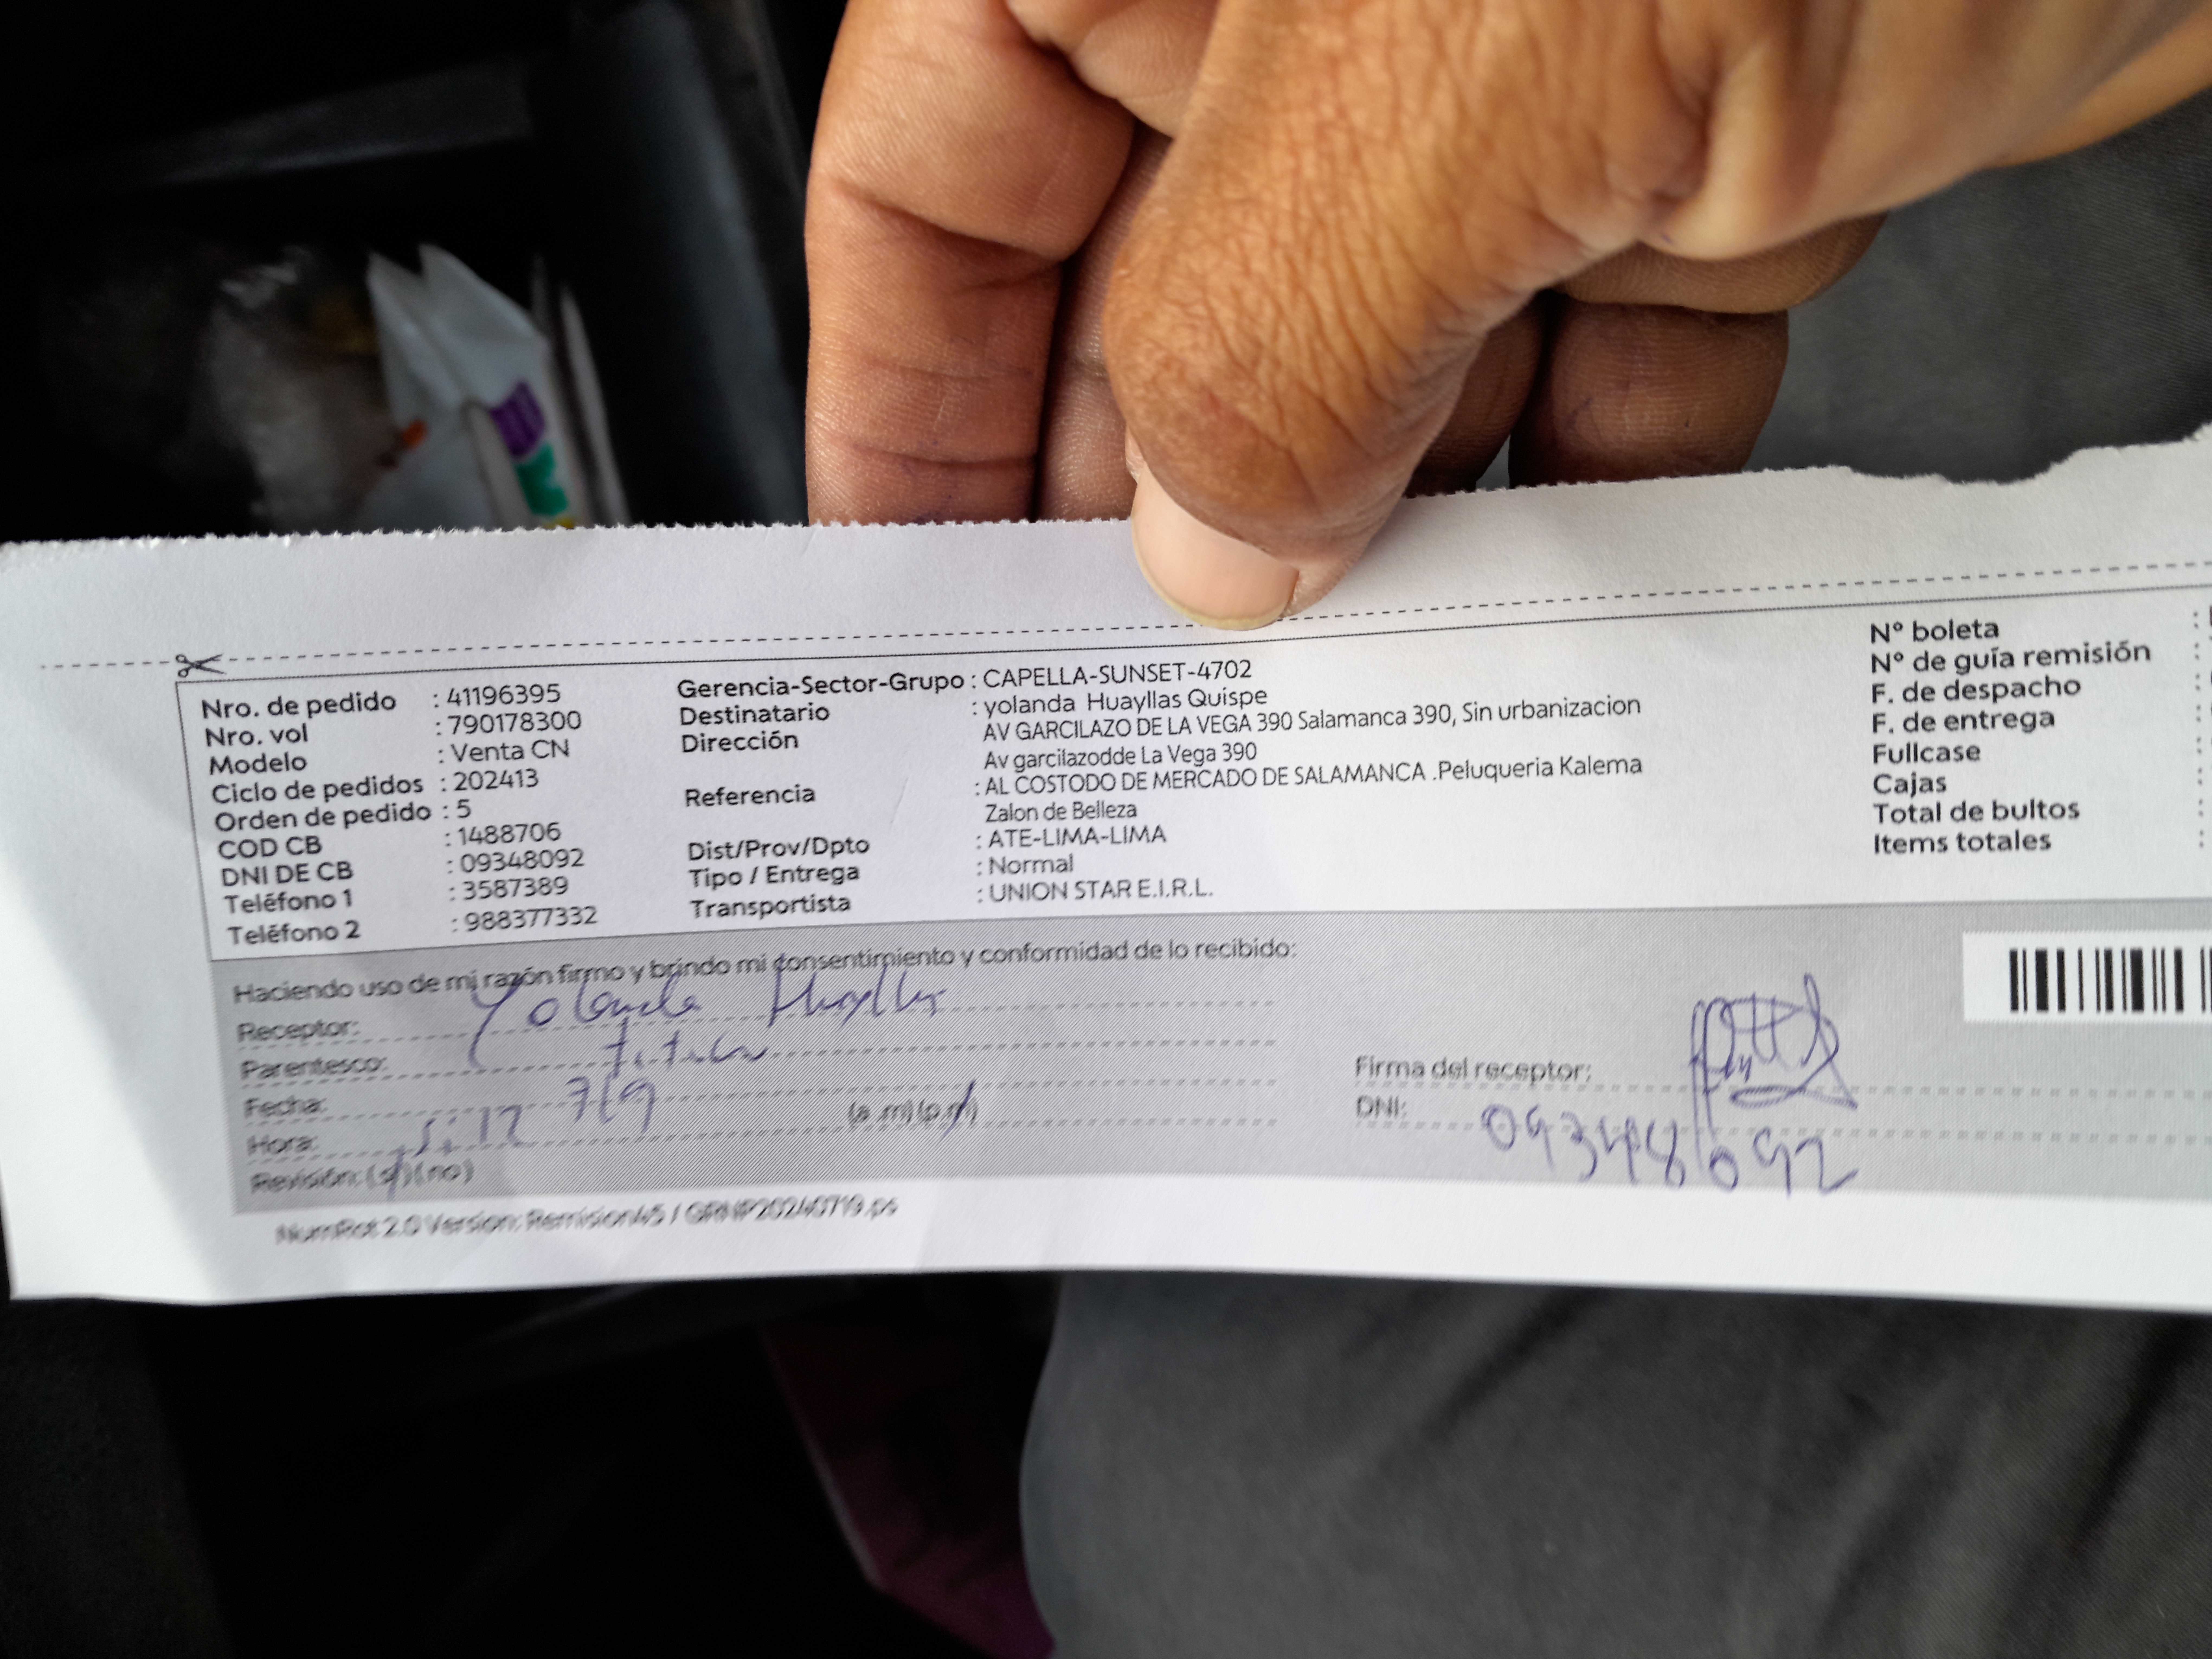 Nro. de pedido : 41196395
Nro. vol : 790178300
Modelo : Venta CN
Ciclo de pedidos : 202413
Orden de pedido : 5
COD CB : 1488706
DNI DE CB : 09348092
Teléfono 1 : 3587389
Teléfono 2 : 988377332
Gerencia-Sector-Grupo : CAPELLA-SUNSET-4702
Destinatario : yolanda Huayllas Quispe
Dirección AV GARCILAZO DE LA VEGA 390 Salamanca 390, Sin urbanizacion
Av garcilazodde La Vega 390
Referencia : AL COSTODO DE MERCADO DE SALAMANCA .Peluqueria Kalema
Zalon de Belleza
Dist/Prov/Dpto : ATE-LIMA-LIMA
Tipo / Entrega : Normal
Transportista : UNION STAR E.I.R.L.
N° boleta :
N° de guía remisión :
F. de despacho :
F. de entrega :
Fullcase :
Cajas :
Total de bultos :
Items totales :
Haciendo uso de mi razón firmo y brindo mi consentimiento y conformidad de lo recibido:
Receptor: Yolanda
Parentesco:
Fecha: 7/9
Hora: (a.m)(p.m)
Revisión: (si)(no)
Firma del receptor:
DNI: 09348092
NumRot 2.0 Version: Remision45 /